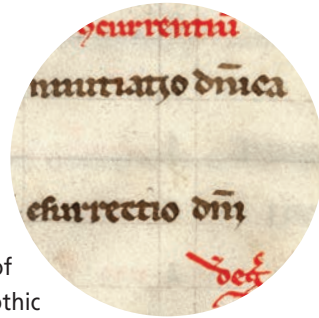 ꝯcurrentiū
nnuntiatio dn̄ica
esurrectio dn̄i
of
othic